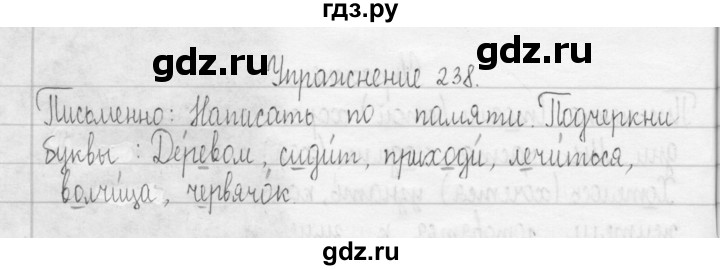 гдз.ру
gdz.ru gdz.ru
Упражнение 238.
Письменно: Написать по памяти. Подчеркни
буквы: Де́ревом, сиди́т, приходи́, лечи́ться,
волчи́ца, червячо́к
gdz.ru gdz.ru
gdz.ru